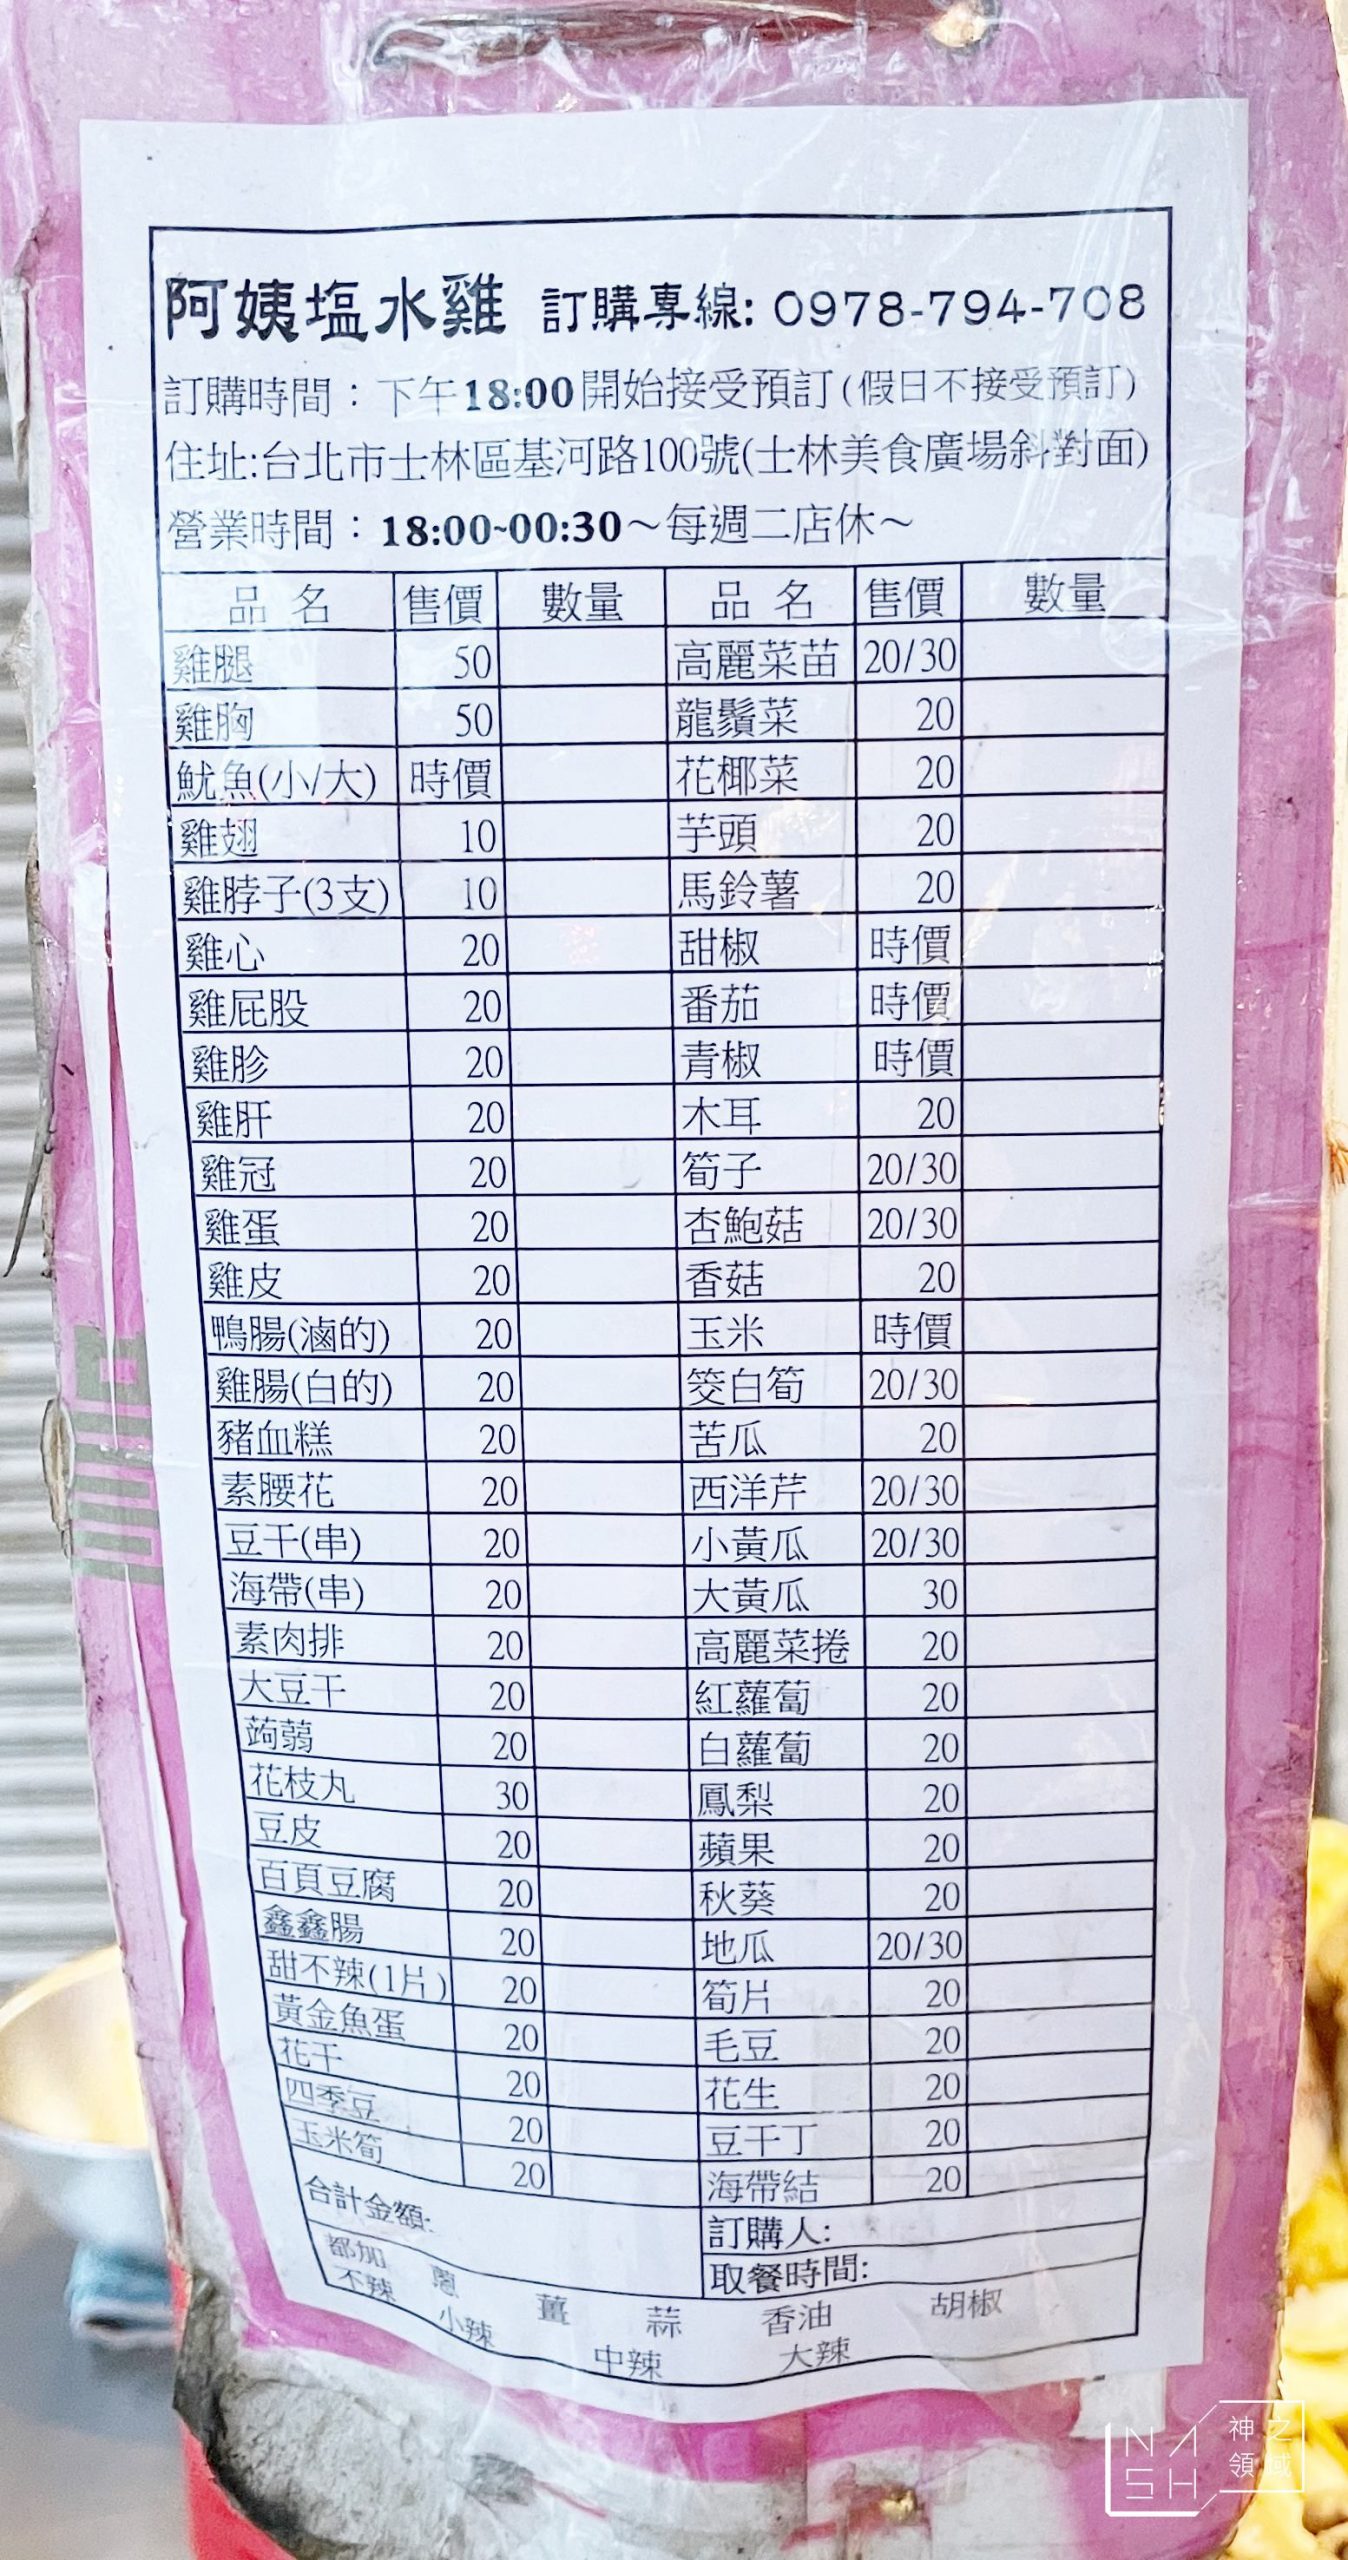 阿姨塩水雞 訂購專線: 0978-794-708
訂購時間：下午18:00開始接受預訂(假日不接受預訂)
住址:台北市士林區基河路100號(士林美食廣場斜對面)
營業時間：18:00~00:30～每週二店休～
品名 售價 數量 品名 售價 數量
雞腿 50 高麗菜苗 20/30
雞胸 50 龍鬚菜 20
魷魚(小/大) 時價 花椰菜 20
雞翅 10 芋頭 20
雞脖子(3支) 10 馬鈴薯 20
雞心 20 甜椒 時價
雞屁股 20 番茄 時價
雞胗 20 青椒 時價
雞肝 20 木耳 20
雞冠 20 筍子 20/30
雞蛋 20 杏鮑菇 20/30
雞皮 20 香菇 20
鴨腸(滷的) 20 玉米 時價
雞腸(白的) 20 筊白筍 20/30
豬血糕 20 苦瓜 20
素腰花 20 西洋芹 20/30
豆干(串) 20 小黃瓜 20/30
海帶(串) 20 大黃瓜 30
素肉排 20 高麗菜捲 20
大豆干 20 紅蘿蔔 20
蒟蒻 20 白蘿蔔 20
花枝丸 30 鳳梨 20
豆皮 20 蘋果 20
百頁豆腐 20 秋葵 20
鑫鑫腸 20 地瓜 20/30
甜不辣(1片) 20 筍片 20
黃金魚蛋 20 毛豆 20
花干 20 花生 20
四季豆 20 豆干丁 20
玉米筍 20 海帶結 20
合計金額: 訂購人:
取餐時間:
都加 蔥 薑 蒜 香油 胡椒
不辣 小辣 中辣 大辣
NASH 神之領域